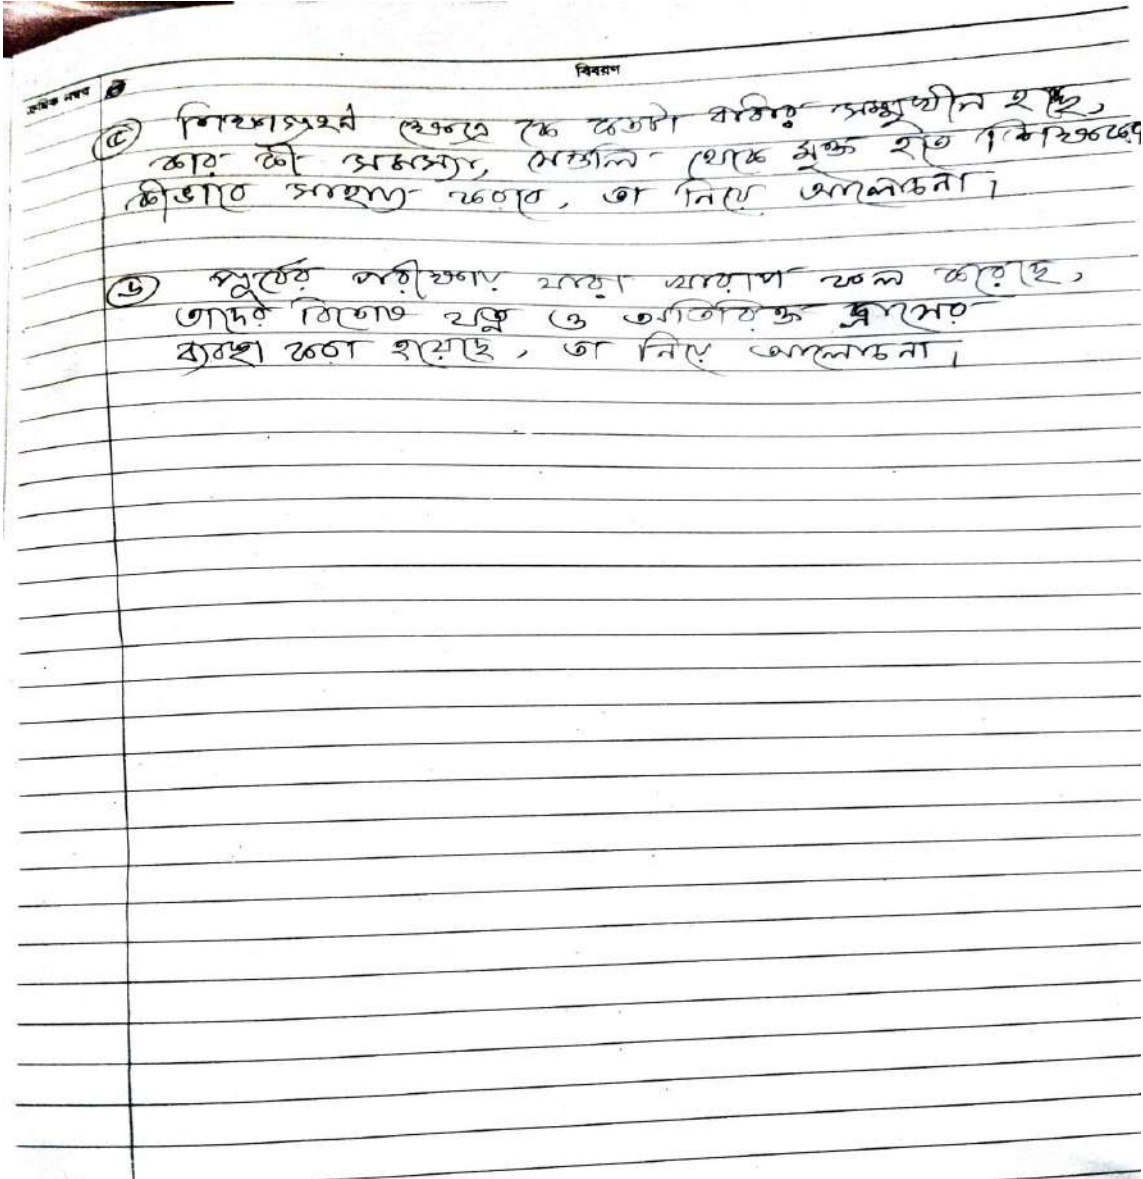 বিবরণ
ক্রমিক নম্বর
৫ শিক্ষাগ্রহণ ক্ষেত্রে কে কতটা বাধার সম্মুখীন হচ্ছে,
কার কী সমস্যা, সেগুলি থেকে মুক্ত হতে শিক্ষকেরা
কীভাবে সাহায্য করবে, তা নিয়ে আলোচনা।
৬ পূর্বের পরীক্ষায় যারা খারাপ ফল করেছে,
তাদের বিশেষ যত্ন ও অতিরিক্ত ক্লাসের
ব্যবস্থা করা হয়েছে, তা নিয়ে আলোচনা।